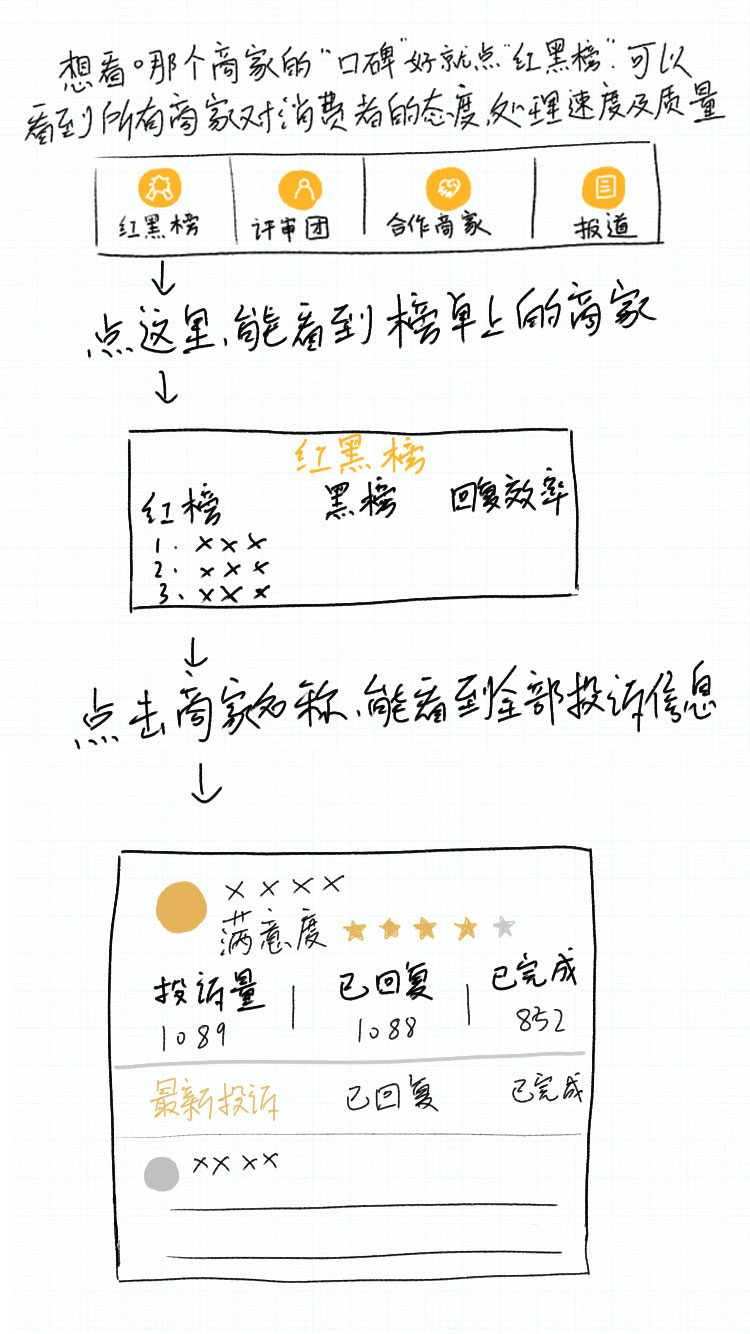 想看哪个商家的“口碑”好就点“红黑榜”.可以
看到所有商家对消费者的态度、处理速度及质量
红黑榜 评审团 合作商家 报道
点这里、能看到榜单上的商家
红黑榜
红榜 黑榜 回复效率
1. xxx
2. xxx
3. xxx
点击商家名称、能看到全部投诉信息
xxxx
满意度
投诉量 | 已回复 | 已完成
1089 1088 852
最新投诉 已回复 已完成
xxxx